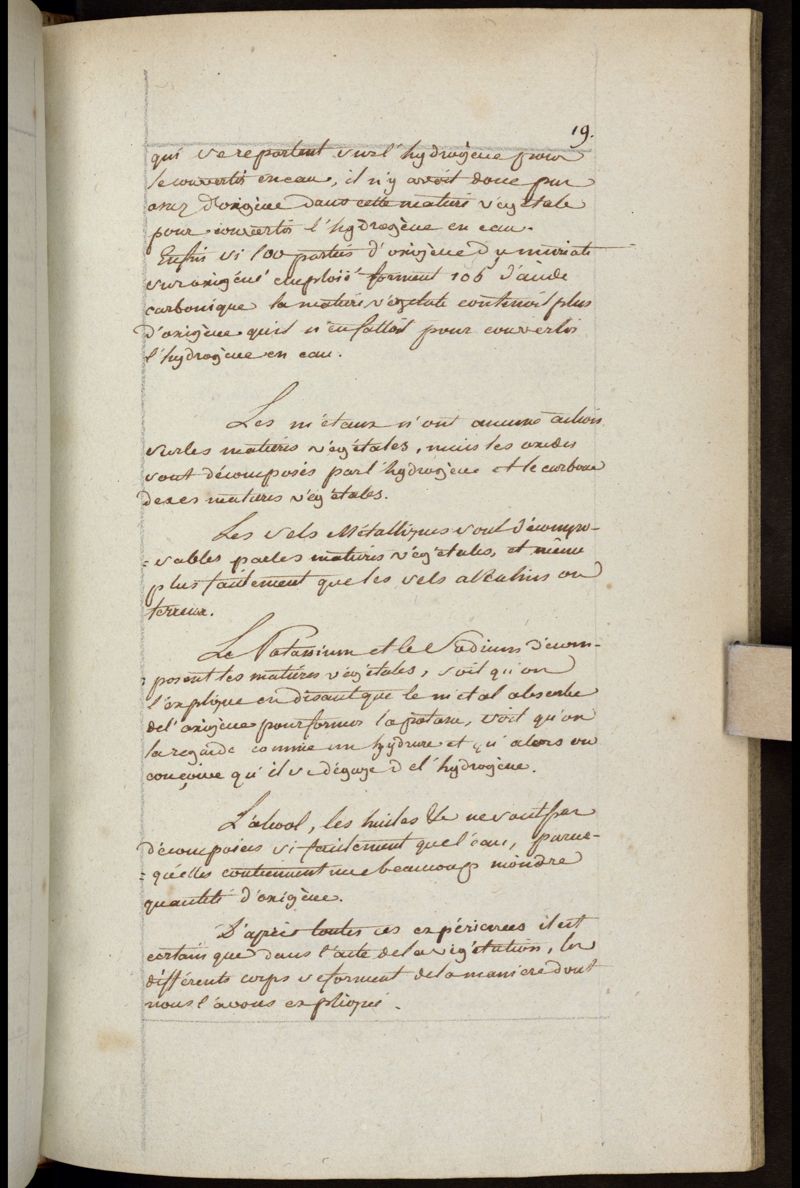 19.
qui se reportent sur l'hydrogène pour
le convertir en eau, il n'y avoit donc pas
assez d'oxigène dans cette matiere végétale
pour convertir l'hydrogène en eau.
Enfin si 100 parties d'oxigène du muriate
suroxigéné emploié forment 105 d'acide
carbonique la matiere végétale contenoit plus
d'oxigène qu'il n'en falloit pour convertir
l'hydrogène en eau.
Les métaux n'ont aucune action
sur les matieres végétales, mais les oxides
sont décomposés par l'hydrogène et le carbone
de ces matieres végétales.
Les sels Métalliques sont décompo-
=sables par les matieres végétales, et même
plus facilement que les sels alkalins ou
terreux.
Le Potassium et le Sodium décom-
posent les matieres végétales, soit qu'on
l'explique en disant que le metal absorbe
de l'oxigène pour former la potasse, soit qu'on
la regarde comme un hydrure et qu'alors on
conçoive qu'il se dégage de l'hydrogène.
L'alcool, les huiles &c ne sont pas
décomposées si facilement que l'eau, parce-
=qu'elles contiennent une beaucoup moindre
quantité d'oxigène.
D'après toutes ces expériences il est
certain que dans l'acte de la végétation, les
différents corps se forment de la maniere dont
nous l'avons expliqué.